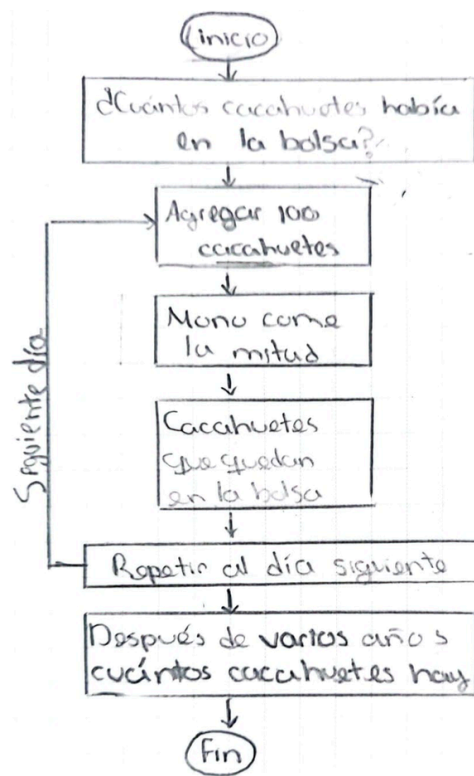 inicio
¿Cuántos cacahuetes había
en la bolsa?
Agregar 100
cacahuetes
Mono come
la mitad
Cacahuetes
que quedan
en la bolsa
Siguiente día
Repetir al día siguiente
Después de varios años
cuántos cacahuetes hay
Fin